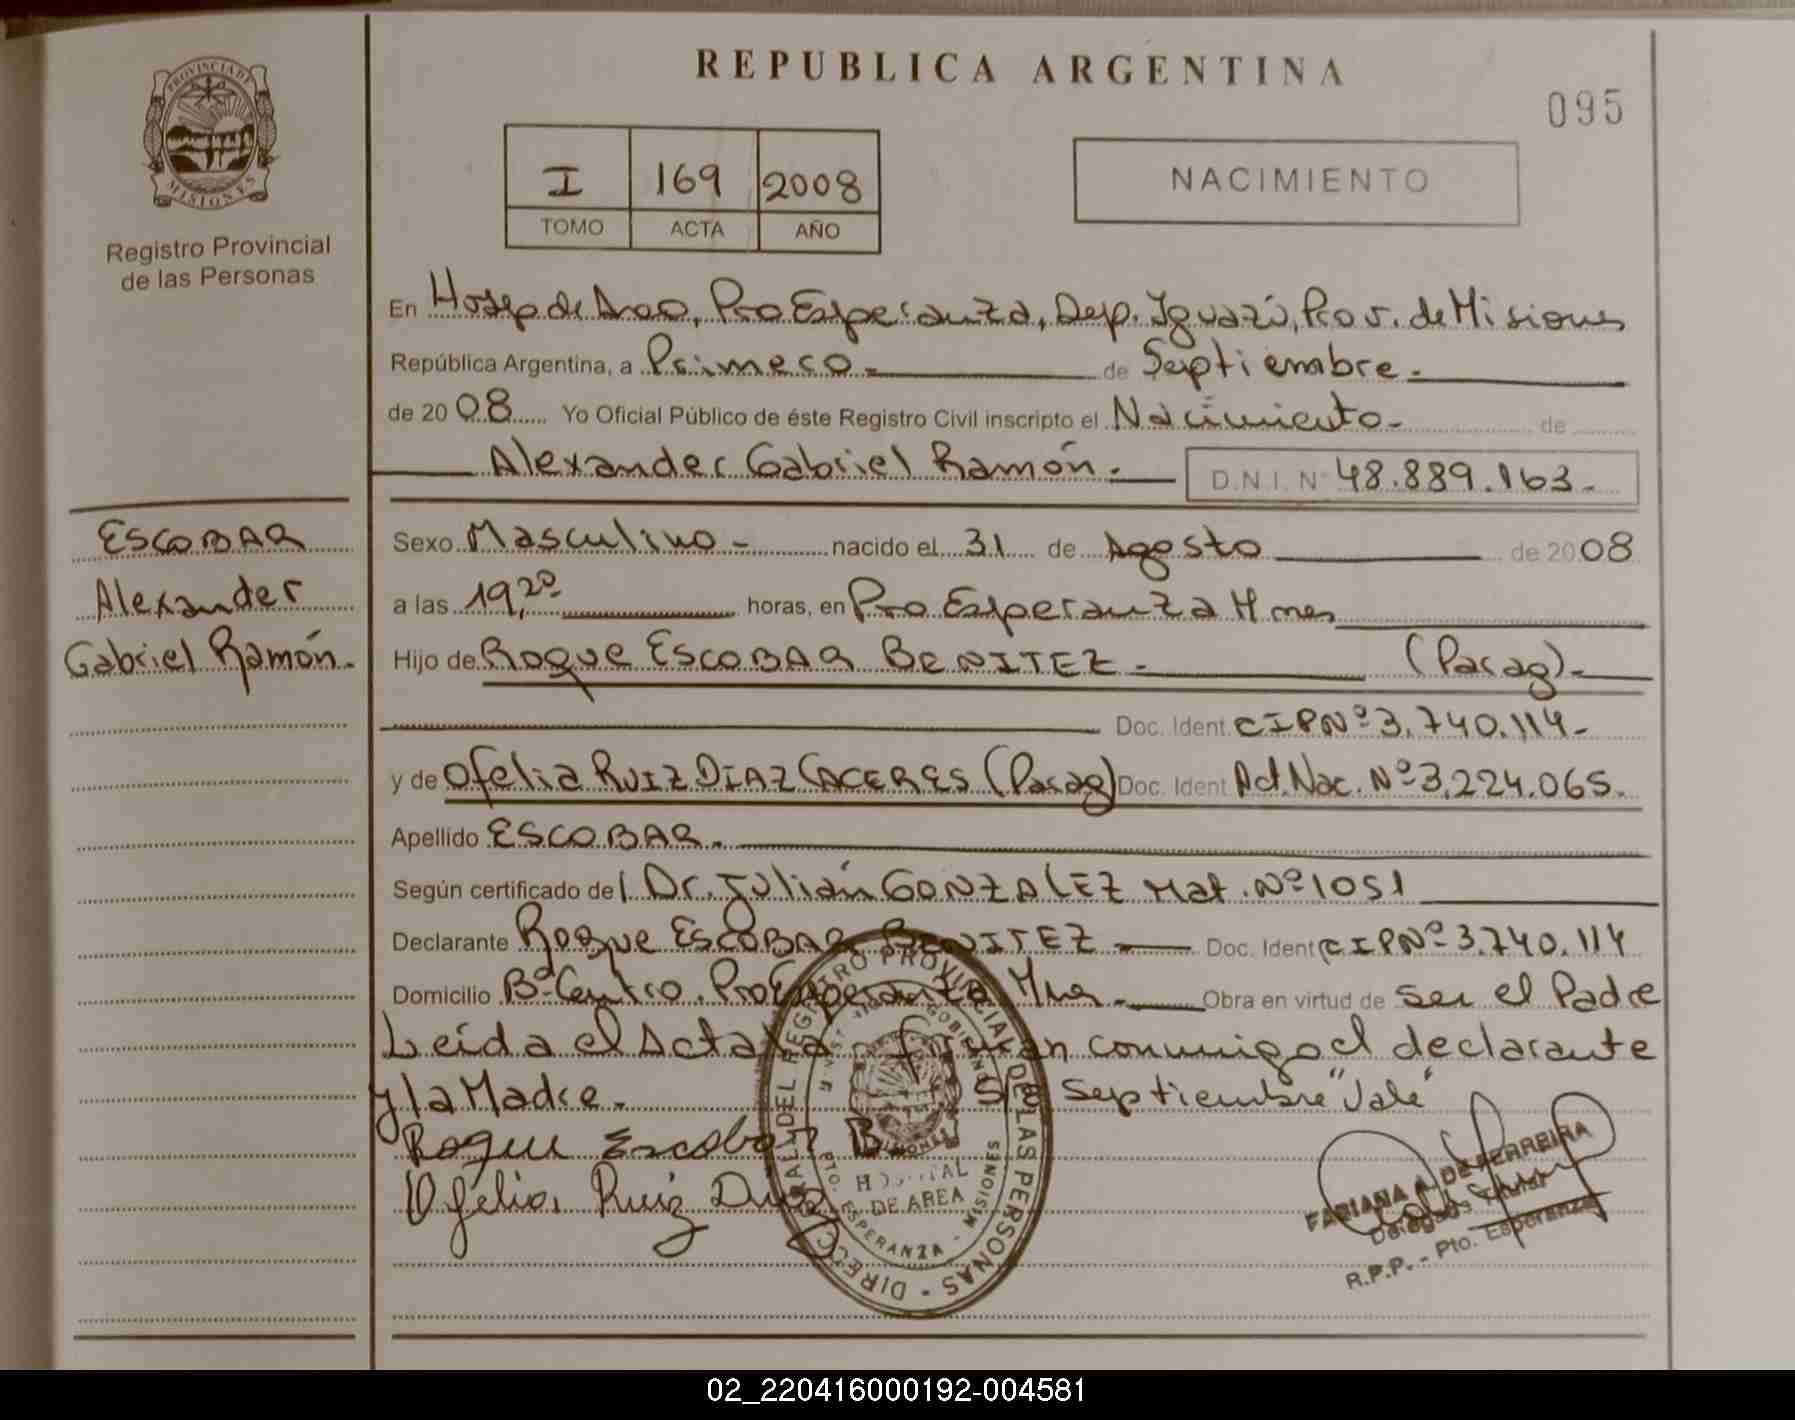 REPUBLICA ARGENTINA
095
PROVINCIA DE MISIONES
Registro Provincial
de las Personas
I 169 2008
TOMO ACTA AÑO
NACIMIENTO
En Hosp de Area, Pto Esperanza, Dep. Iguazú, Prov. de Misiones
República Argentina, a Primero.- de Septiembre.-
de 2008 Yo Oficial Público de éste Registro Civil inscripto el Nacimiento- de
Alexander Gabriel Ramón.- D.N.I. Nº 48.889.163.-
ESCOBAR
Alexander
Gabriel Ramón.-
Sexo Masculino- nacido el 31 de Agosto de 2008
a las 19,20 horas, en Pto Esperanza Mnes
Hijo de Roque ESCOBAR BENITEZ.- (Parag).-
Doc. Ident. CIPNº 3.740.114-
y de Ofelia RUIZ DIAZ CACERES (Parag) Doc. Ident Act. Nac. Nº 3.224.065.
Apellido ESCOBAR.
Según certificado del Dr. Julián GONZALEZ Mat. Nº 1051
Declarante Roque ESCOBAR BENITEZ Doc. Ident CIPNº 3.740.114
Domicilio Bº Centro. Pto Esperanza Mnes.- Obra en virtud de ser el Padre
Leída el Acta la firman conmigo el declarante
y la Madre. S/B Septiembre "Vale"
Roque Escobar B
Ofelia Ruiz Diaz
DIRECC GRAL DEL REGISTRO PROVINCIAL DE LAS PERSONAS
HOSPITAL
DE AREA
PTO. ESPERANZA - MISIONES
FABIANA A. DE FERREIRA
Delegada Titular
R.P.P. - Pto. Esperanza
02_220416000192-004581